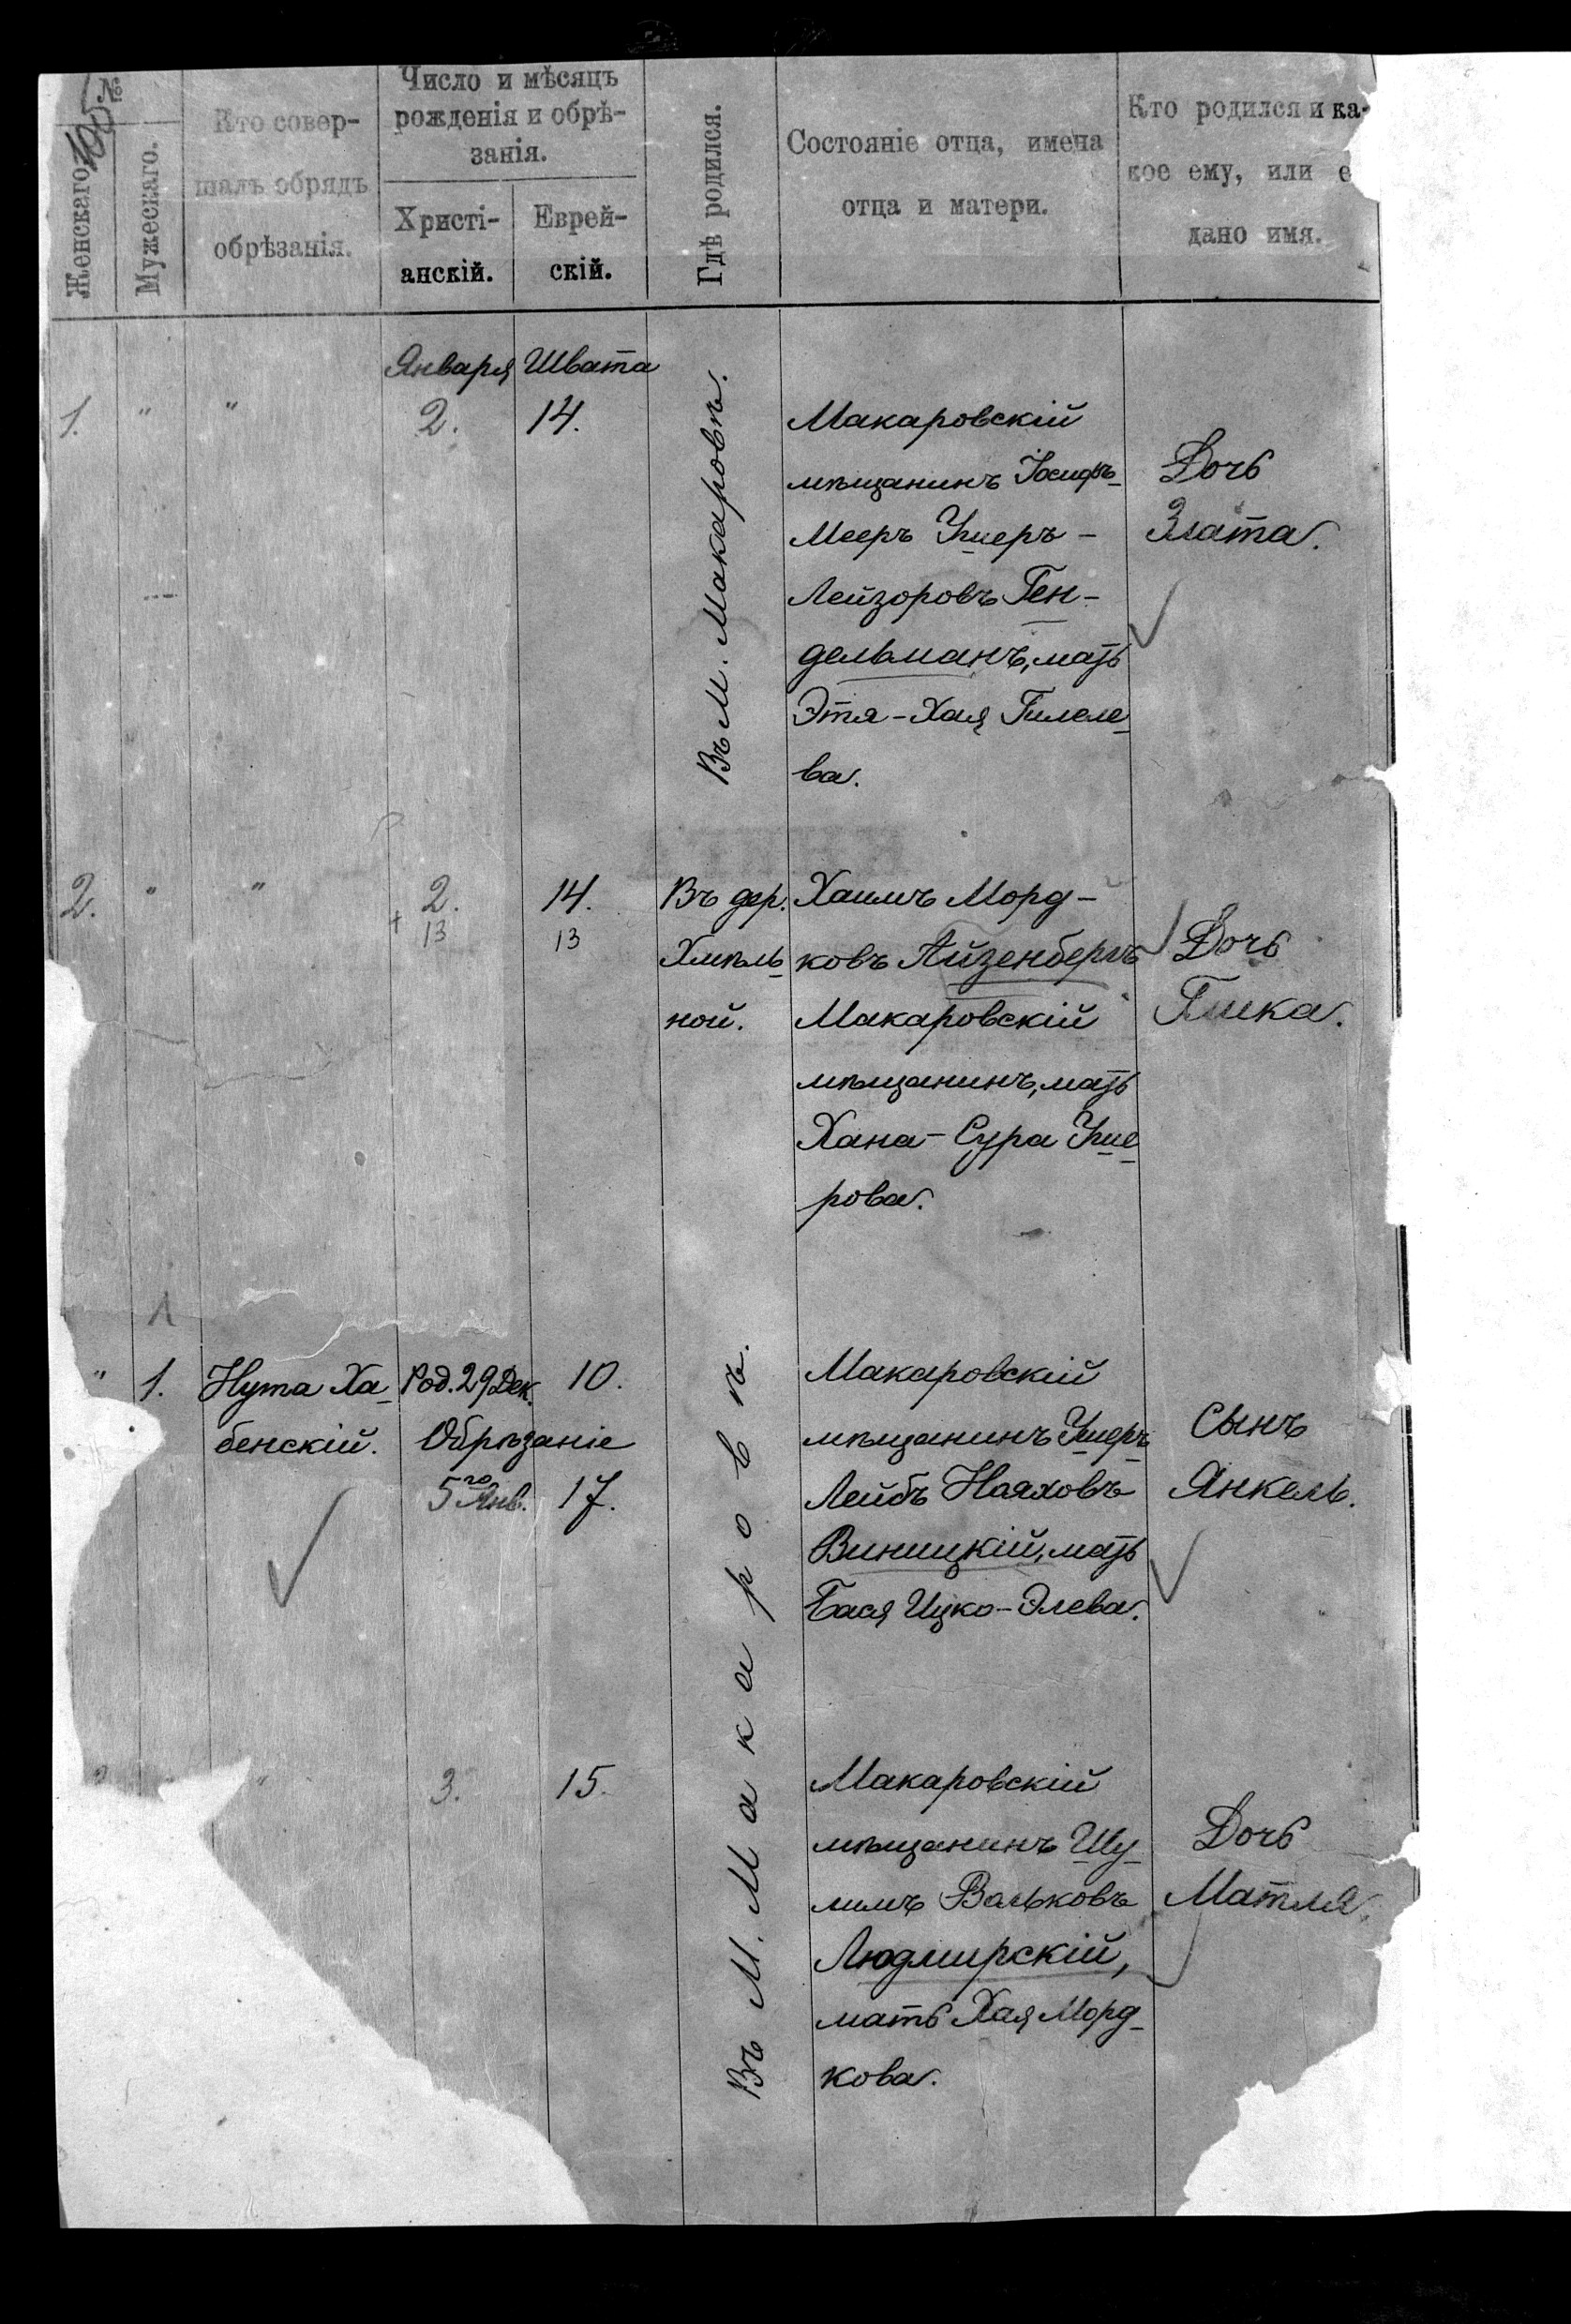 №
105
Женскаго.
Мужескаго.
Кто совер-
шалъ обрядъ
обрѣзанія.
Число и мѣсяцъ
рожденія и обрѣ-
занія.
Христі-
анскій.
Еврей-
скій.
Гдѣ родился.
Состояніе отца, имена
отца и матери.
Кто родился и ка-
кое ему, или е
дано имя.
Января Швата
1. " " 2. 14.
Въ М. Макаровѣ.
Макаровскій
мѣщанинъ Іосифъ-
Мееръ Ушеръ-
Лейзоровъ Ген-
дельманъ, мать
Этя-Хая Гилеле-
ва.
Дочь
Злата.
2. " " 2. 14.
13 13
Въ дер.
Хмѣль-
ной.
Хаимъ Морд-
ковъ Айзенбергъ
Макаровскій
мѣщанинъ, мать
Хана-Сура Уше-
рова.
Дочь
Гишка.
1
" 1. Нута Ха-
бенскій.
Род. 29 Дек. 10.
Обрѣзаніе
5го Янв. 17.
Въ М. Макаровѣ.
Макаровскій
мѣщанинъ Ушеръ-
Лейбъ Наяховъ
Виницкій, мать
Бася Ицко-Элева.
Сынъ
Янкель.
" 3. 15.
Макаровскій
мѣщанинъ Шу-
лимъ Вальковъ
Людмирскій,
мать Хая Морд-
кова.
Дочь
Матля.